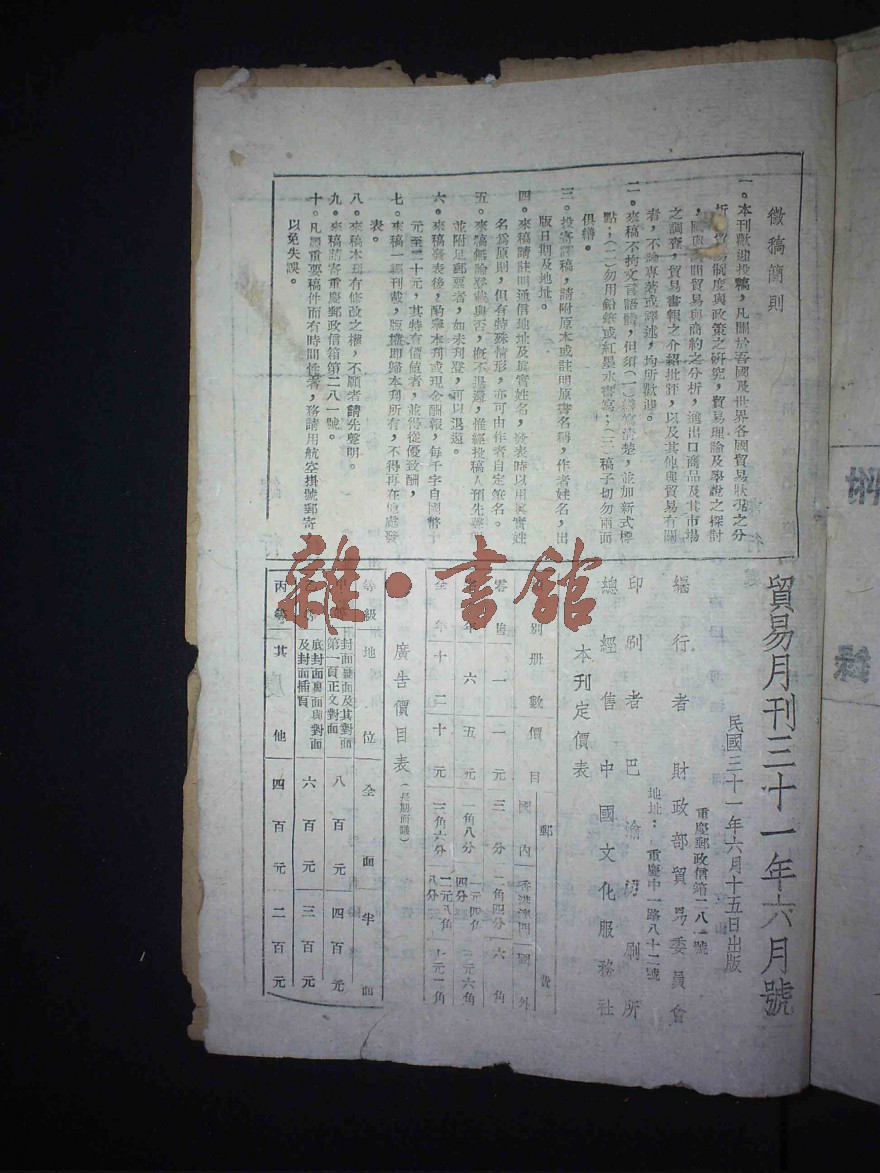 徵稿簡則
一。本刊歡迎投稿，凡關於吾國及世界各國貿易狀況之分
析，貿易制度與政策之研究，貿易理論及學說之探討
，國與國間貿易與商約之分析，進出口商品及其市場
之調查，貿易書報之介紹批評，以及其他與貿易有關
者，不論專著或譯述，均所歡迎。
二。來稿不拘文言語體，但須(一)繕寫清楚，並加新式標
點；(二)勿用鉛筆或紅墨水書寫；(三)稿子切勿兩面
俱繕。
三。投寄譯稿，請附原本或註明原書名稱，作者姓名，出
版日期及地址。
四。來稿請註明通信地址及真實姓名，發表時以用真實姓
名為原則，但有特殊情形，亦可由作者自定筆名。
五。來稿無論登載與否，概不退還，惟經投稿人預先聲明
並附足郵票者，如未刊登，可以退還。
六。來稿發表後，酌奉本刊或現金酬報，每千字自國幣十
元至二十元，其特有價值者，並得從優致酬，
七。來稿一經刊載，版權即歸本刊所有，不得再在他處發
表。
八。來稿本刊有修改之權，不願者請先聲明。
九。來稿請寄重慶郵政信箱第二八一號。
十。凡屬重要稿件而有時間性者，務請用航空掛號郵寄
以免失誤。
貿易月刊三十一年六月號
民國三十一年六月十五日出版
重慶郵政信箱二八一號
編行者 財政部貿易委員會
地址：重慶中一路八十二號
印刷者 巴渝印刷所
總經售 中國文化服務社
本刊定價表
別 冊數 價目 郵費 國內 香港澳門 國外
零售 一 二元 三分 一角四分 六角
年 六 五元 一角八分 四分 三元六角
全年 十二 十元 三角六分 二元八角八分 七元二角
廣告價目表(長期面議)
等級 地位 全面 半面
甲等 封面裏面及其對面第一頁正文對面 八百元 四百元
等 底封面裏面與對面及封面插頁 六百元 三百元
丙等 其他 四百元 二百元
雜·書館
附
錄